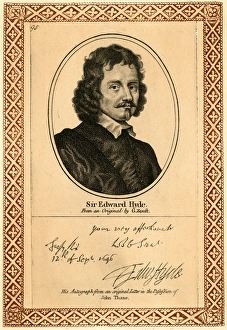 98
Sir Edward Hyde.
From an Original by G. Zoust.
your very affectionate
12th of Sept. 1646
Edw Hyde
His Autograph from an original Letter in the Possession of
John Thane.